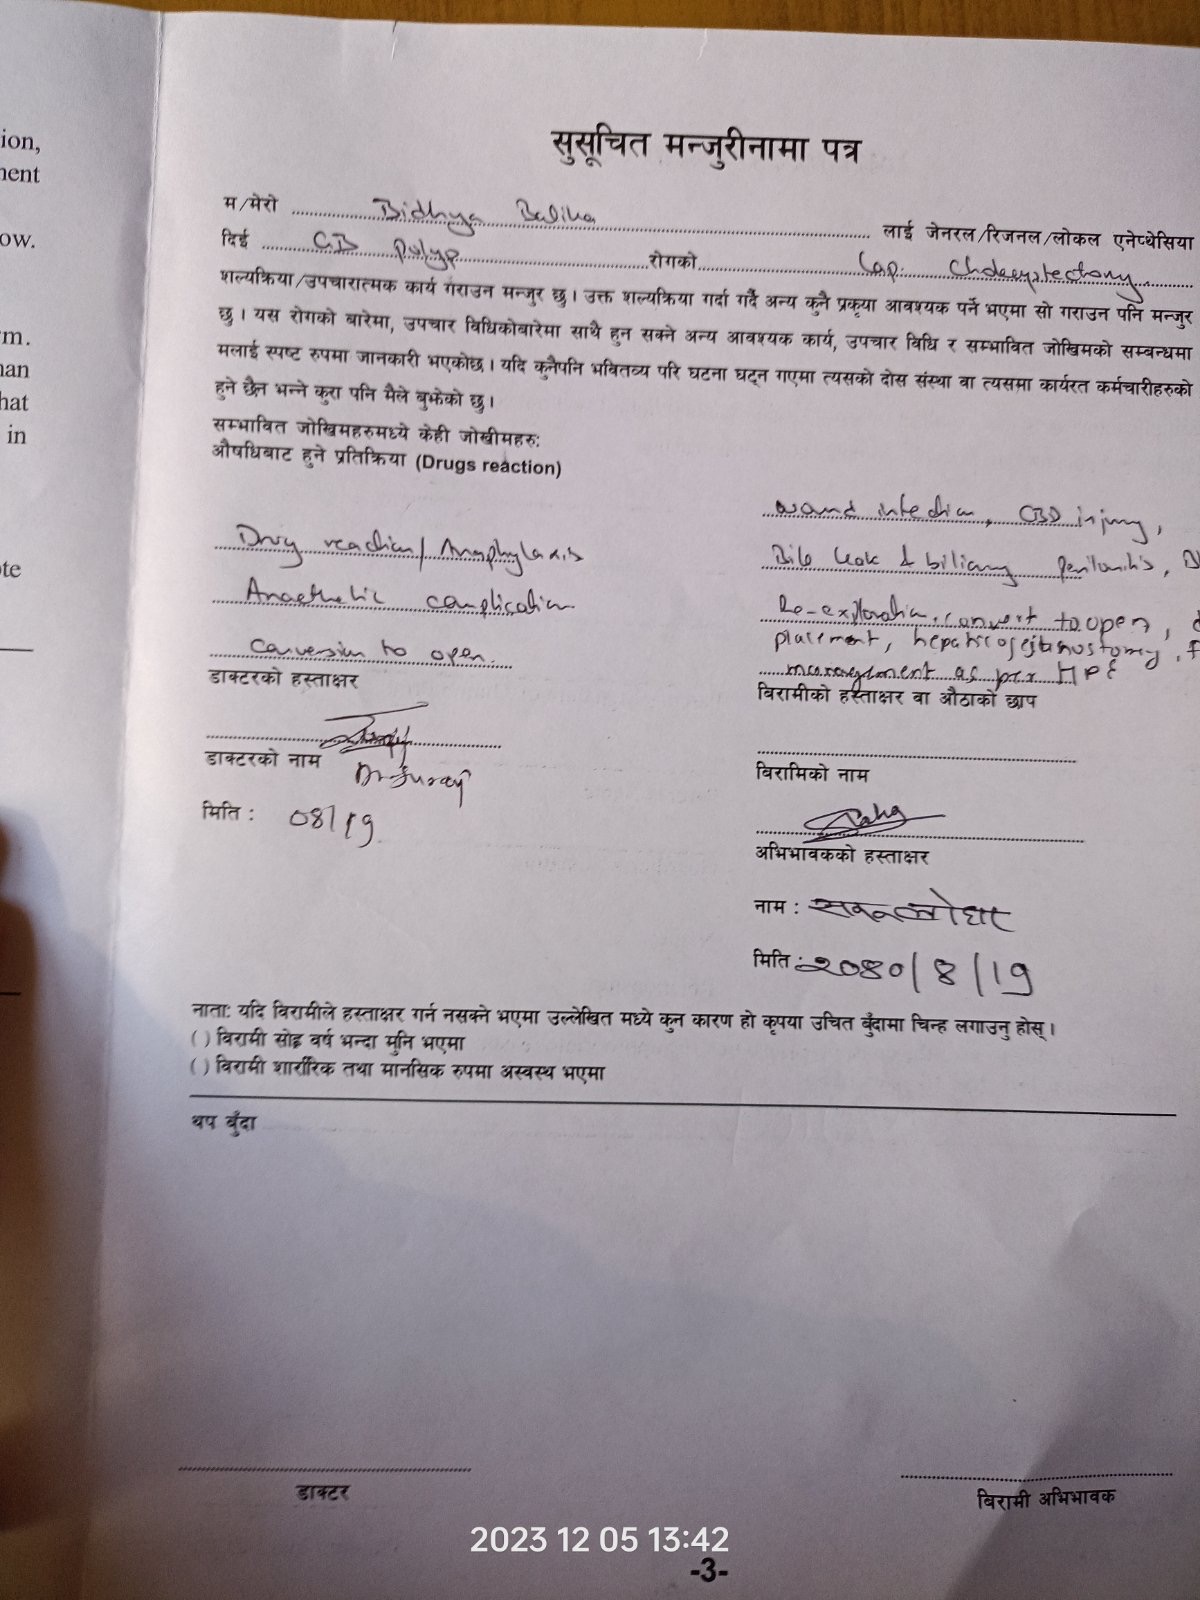 ion,
ment
ow.
m.
han
hat
in
te
सुसूचित मन्जुरीनामा पत्र
म/मेरो Bidhya लाई जेनरल/रिजनल/लोकल एनेप्थेसिया
दिई GB polyp रोगको Lap. Cholecystectomy
शल्यक्रिया/उपचारात्मक कार्य गराउन मन्जुर छु । उक्त शल्यक्रिया गर्दा गर्दै अन्य कुनै प्रकृया आवश्यक पर्ने भएमा सो गराउन पनि मन्जुर
छु । यस रोगको बारेमा, उपचार विधिकोबारेमा साथै हुन सक्ने अन्य आवश्यक कार्य, उपचार विधि र सम्भावित जोखिमको सम्बन्धमा
मलाई स्पष्ट रुपमा जानकारी भएकोछ । यदि कुनैपनि भवितव्य परि घटना घट्न गएमा त्यसको दोस संस्था वा त्यसमा कार्यरत कर्मचारीहरुको
हुने छैन भन्ने कुरा पनि मैले बुझेको छु ।
सम्भावित जोखिमहरुमध्ये केही जोखीमहरु:
औषधिबाट हुने प्रतिक्रिया (Drugs reaction)
Drug reaction/Anaphylaxis
Anaethetic complication
conversion to open.
डाक्टरको हस्ताक्षर
डाक्टरको नाम
Dr Suraj
मिति : 08/19
wound infection, CBD injury,
Bile leak & biliary peritonitis,
Re-exploration, convert to open,
placement, hepaticojejunostomy,
management as per HPE
विरामीको हस्ताक्षर वा औठाको छाप
विरामिको नाम
अभिभावकको हस्ताक्षर
नाम :
मिति : 2080/8/19
नाता: यदि विरामीले हस्ताक्षर गर्न नसक्ने भएमा उल्लेखित मध्ये कुन कारण हो कृपया उचित बुँदामा चिन्ह लगाउनु होस् ।
( ) विरामी सोह्र वर्ष भन्दा मुनि भएमा
( ) विरामी शारीरिक तथा मानसिक रुपमा अस्वस्थ भएमा
थप बुँदा
डाक्टर
विरामी अभिभावक
2023 12 05 13:42
-3-